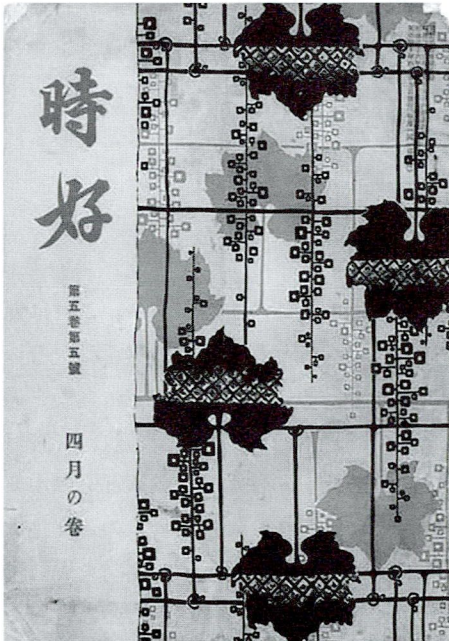 時好
第五巻第五號
四月の巻